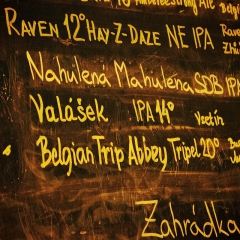 Strong Ale Belgi
Raven 12° Hay-Z-Daze NE IPA Rave
Nahulená Mahulena SDB IPA
Valášek IPA 14° Vsetín
Belgian Trip Abbey Tripel 20°
Zahrádka